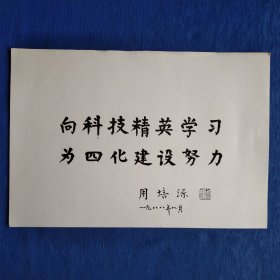 向科技精英学习
为四化建设努力
周培源
一九八八年八月